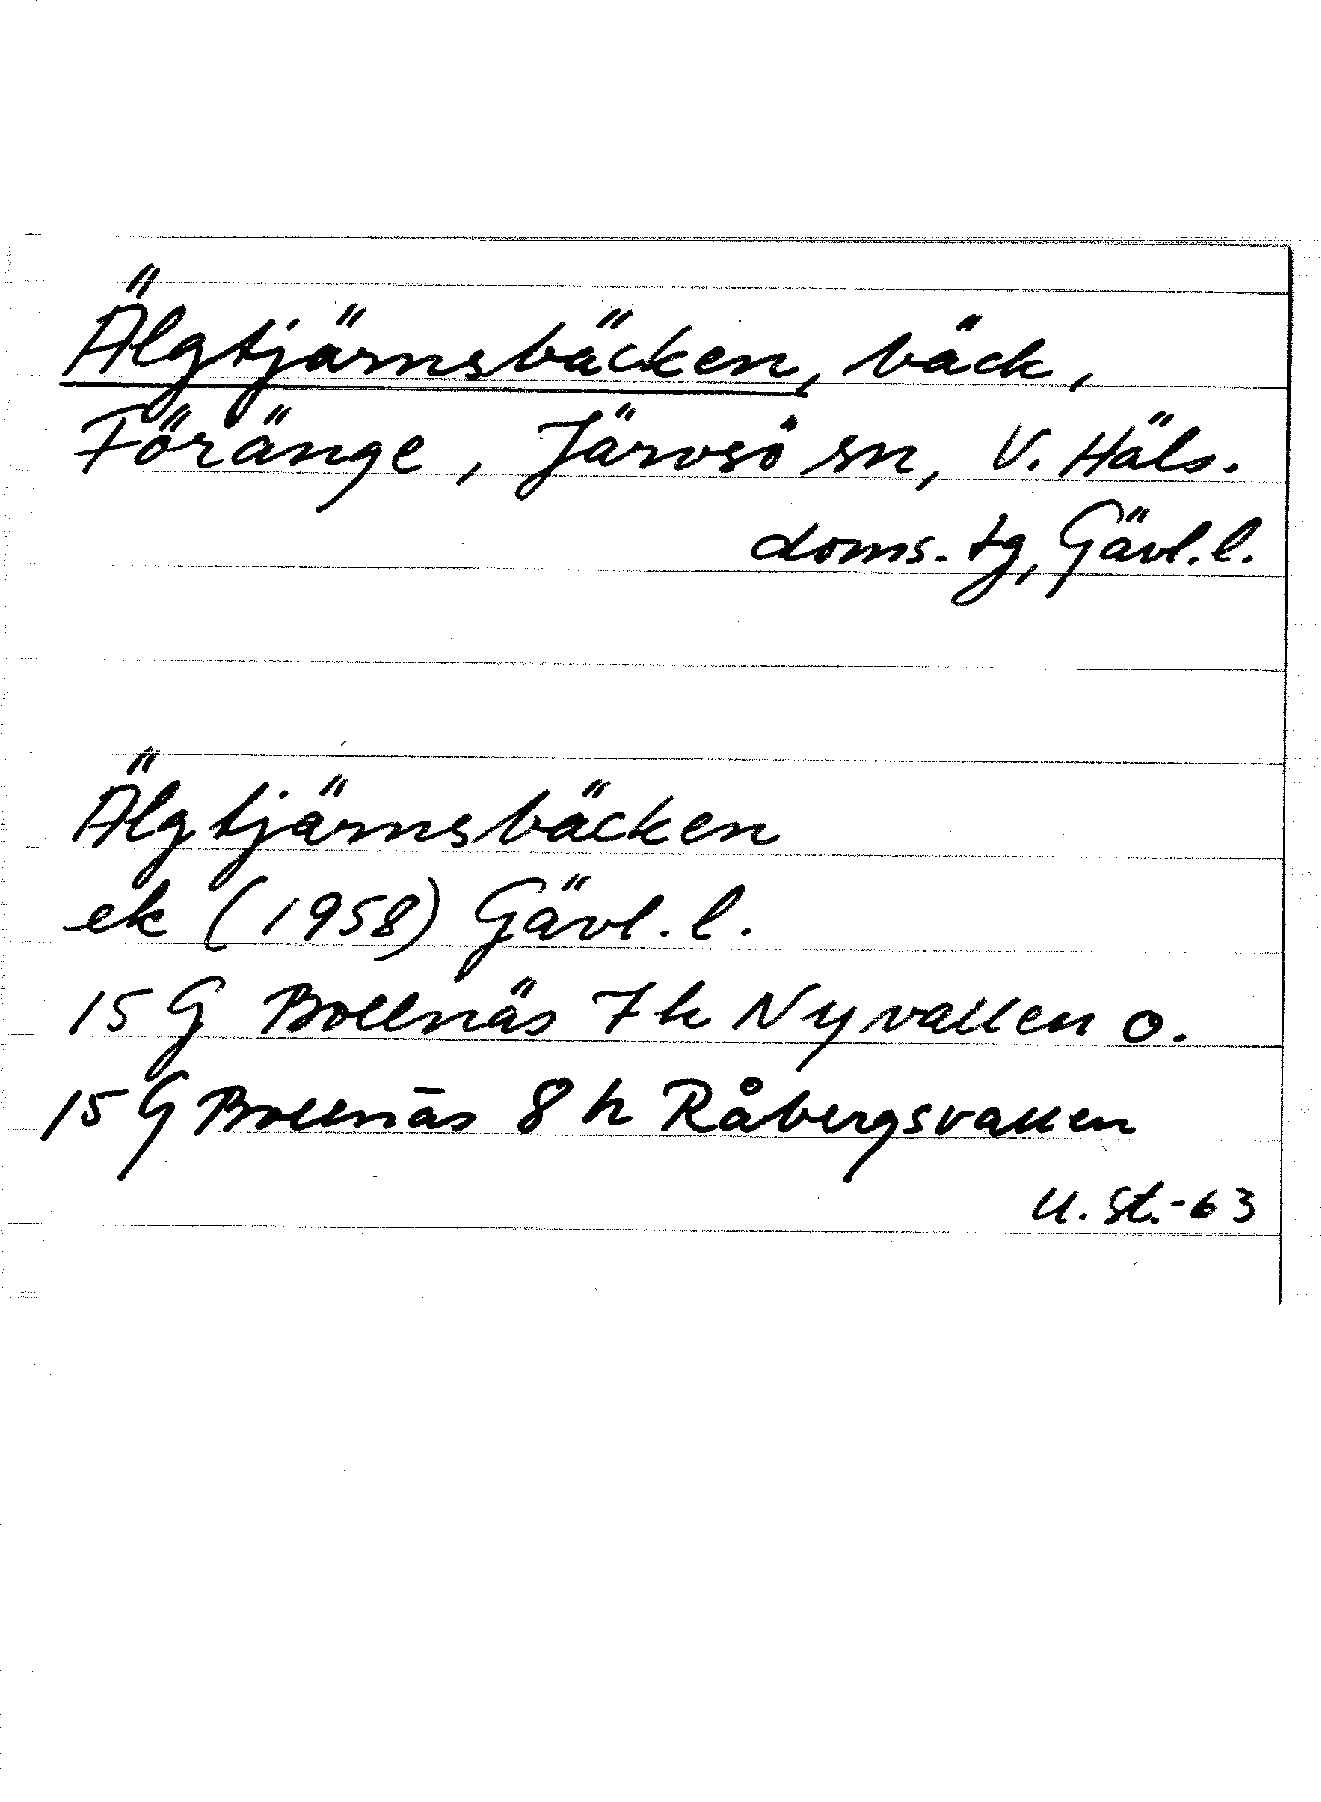 Älgtjärnsbäcken, bäck,
Föränge, Järvsö sn, V. Häls.
doms. tg, Gävl. l.
Älgtjärnsbäcken
ek (1958) Gävl. l.
15 G Bollnäs 7 h Nyvallen o.
15 G Bollnäs 8 h Råbergsvallen
U. St. -63